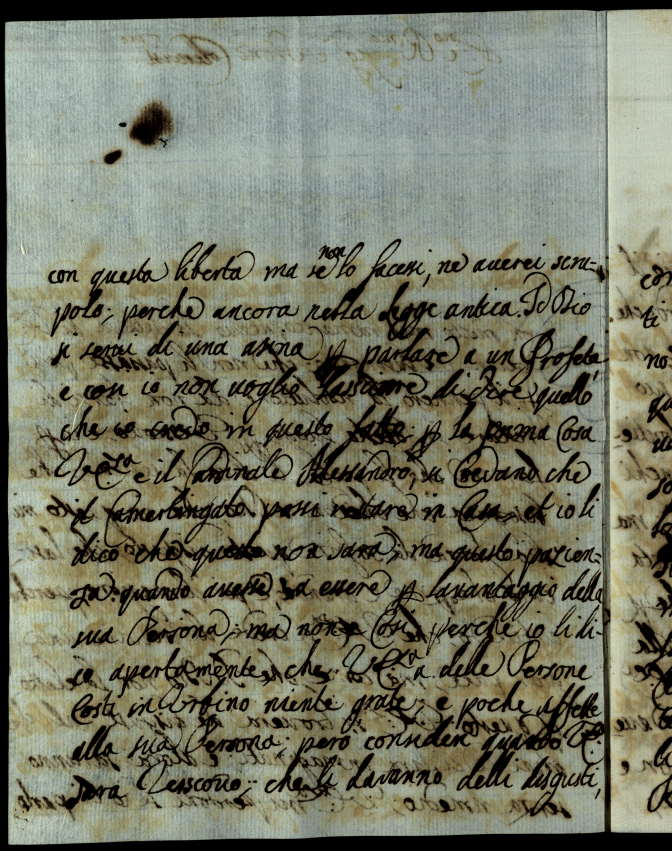 con questa liberta ma se non lo facessi, ne auerei scru-
polo, perche ancora nella legge antica Id Dio
si serui di una asina p parlare a un Profeta
e cosi io non uoglio lassiare di dire quello
che io credo in questo fatto. p la prima Cosa
V. Eza e il Cardinale Alessandro, si Credano che
il Camerlingato possi restare in Casa, et io li
dico che questo non sara, ma questo pazien-
za quando auesse a essere p lauantaggio della
sua Persona, ma non e Cosi perche io li di-
co apertamente, che V. Eza a delle Persone
Costi in Urbino niente grate, e poche affette
alla sua Persona, pero consideri quando V. E.
sara Vescouo, che li daranno delli disgusti,